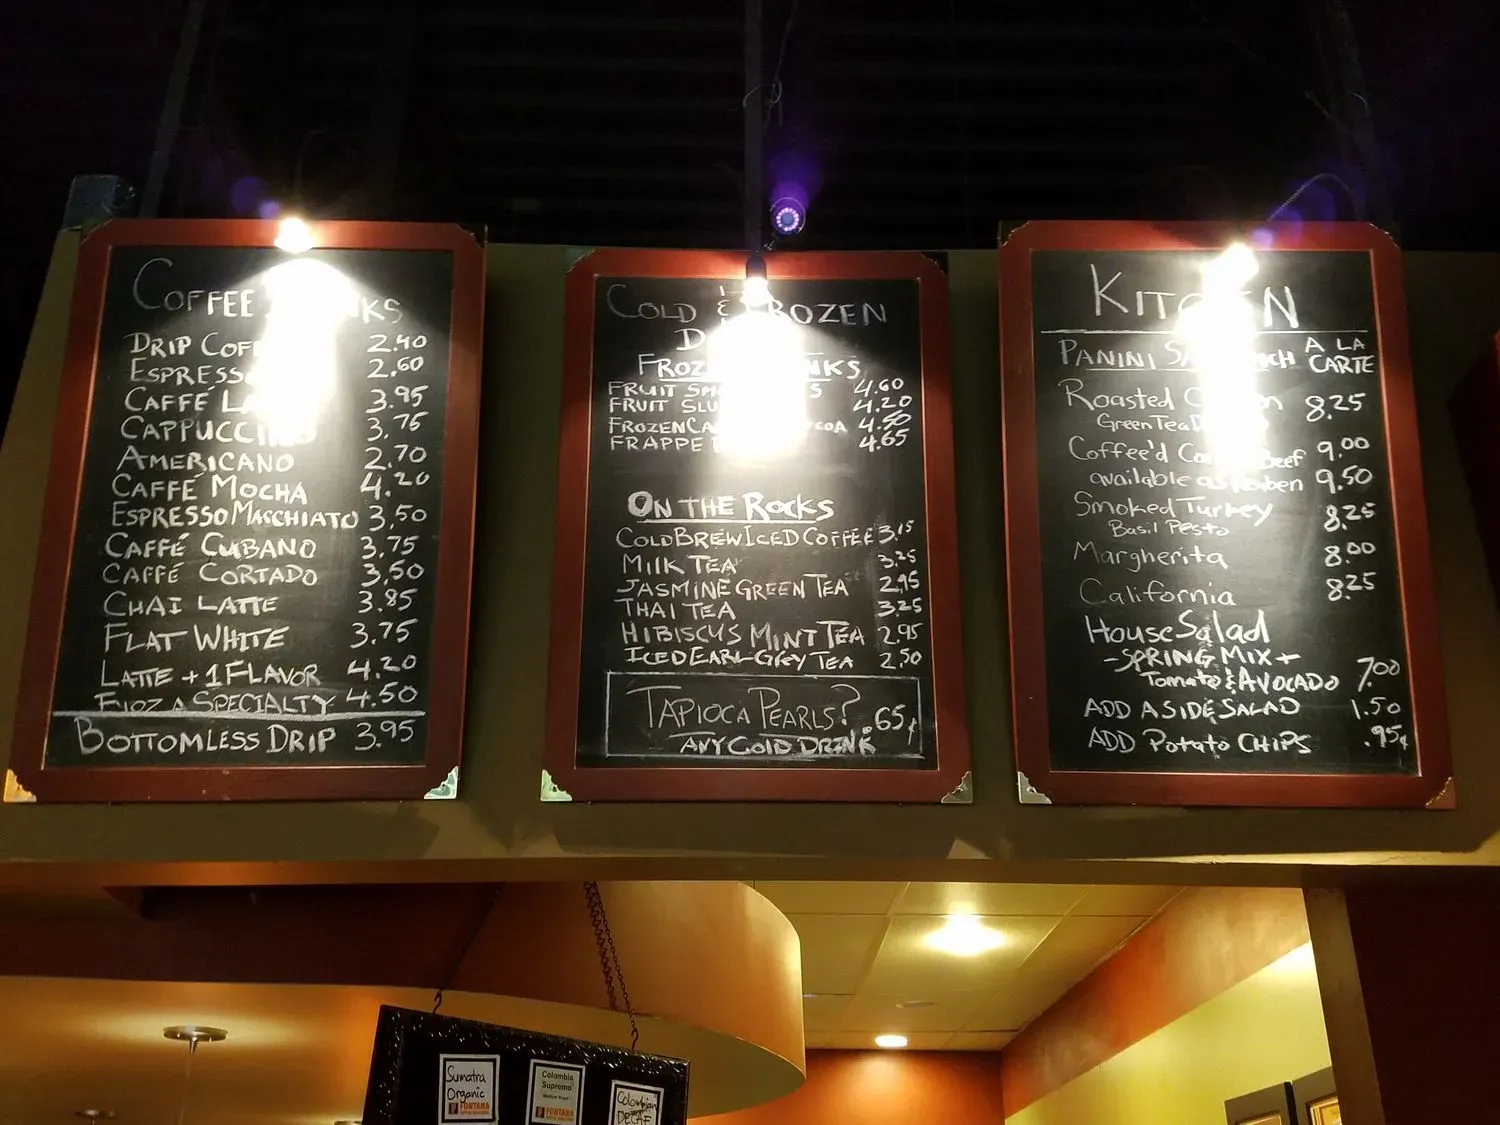 COFFEE
DRIP 2.40
ESPRESSO 2.60
CAFFÉ 3.95
CAPPUCCINO 3.75
AMERICANO 2.70
CAFFÉ MOCHA 4.20
ESPRESSO MACCHIATO 3.50
CAFFÉ CUBANO 3.75
CAFFÉ CORTADO 3.50
CHAI LATTE 3.85
FLAT WHITE 3.75
LATTE + 1 FLAVOR 4.20
SPECIALTY 4.50
BOTTOMLESS DRIP 3.95
COLD & FROZEN
FRUIT 4.60
FRUIT 4.20
FROZEN 4.50
FRAPPE 4.65
ON THE ROCKS
COLD BREW ICED COFFEE 3.15
MILK TEA 3.25
JASMINE GREEN TEA 2.95
THAI TEA 3.25
HIBISCUS MINT TEA 2.95
ICED EARL GREY TEA 2.50
TAPIOCA PEARLS? .65¢
ANY COLD DRINK
KITCHEN
PANINI A LA
CARTE
Roasted 8.25
Green Tea
Coffee'd Beef 9.00
available as Reuben 9.50
Smoked Turkey 8.25
Basil Pesto
Margherita 8.00
California 8.25
House Salad
-SPRING MIX +
Tomato & AVOCADO 7.00
ADD A SIDE SALAD 1.50
ADD Potato CHIPS .95¢
Sumatra
Organic
FONTANA
Colombia
Supremo
FONTANA
Colombian
DECAF